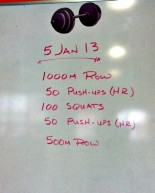 5 JAN 13
1000M ROW
50 PUSH-UPS (HR)
100 SQUATS
50 PUSH-UPS (HR)
500M ROW